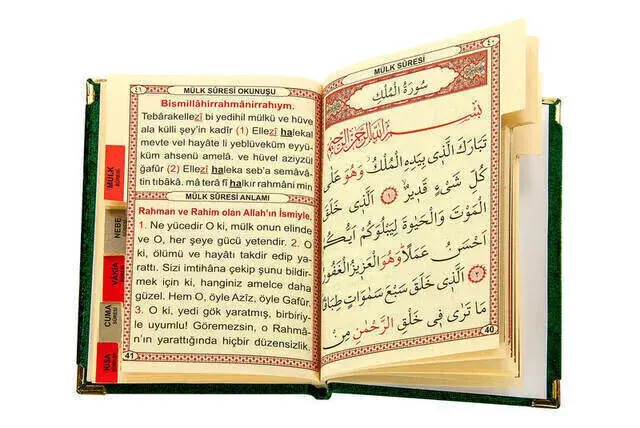 ٤١
MÜLK SÛRESİ OKUNUŞU
Bismillâhirrahmânirrahıym.
Tebârakellezî bi yedihil mülkü ve hüve
ala külli şey'in kadîr (1) Ellezî haleka
mevte vel hayâte li yeblüveküm eyyü
küm ahsenü amelâ. ve hüvel aziyzül
ğafûr (2) Ellezî haleka seb'a semâvâ-
tin tıbâkâ. mâ terâ fî halkır rahmâni min
MÜLK SÛRESİ ANLAMI
Rahman ve Rahim olan Allah'ın İsmiyle,
1. Ne yücedir O ki, mülk onun elinde
ve O, her şeye gücü yetendir. 2. O
ki, ölümü ve hayatı takdir edip ya-
rattı. Sizi imtihâna çekip şunu bildir-
mek için ki, hanginiz amelce daha
güzel. Hem O, öyle Azîz, öyle Gafûr.
3. O ki, yedi gök yaratmış, birbiriy-
le uyumlu! Göremezsin, o Rahmâ-
n'ın yarattığında hiçbir düzensizlik.
41
MÜLK
SÛRESİ
NEBE
SÛRESİ
VÂKIA
SÛRESİ
CUMA
SÛRESİ
KISA
SÛRELER
٤٠
MÜLK SÛRESİ
سُورَةُ الْمُلْكِ
بِسْمِ اللّٰهِ الرَّحْمٰنِ الرَّحِيمِ
تَبَارَكَ الَّذِي بِيَدِهِ الْمُلْكُ وَهُوَ عَلٰى
كُلِّ شَيْءٍ قَدِيرٌ ﴿١﴾ اَلَّذِي خَلَقَ
الْمَوْتَ وَالْحَيٰوةَ لِيَبْلُوَكُمْ اَيُّكُمْ
اَحْسَنُ عَمَلًا وَهُوَ الْعَزِيزُ الْغَفُورُ
﴿٢﴾ اَلَّذِي خَلَقَ سَبْعَ سَمٰوَاتٍ طِبَاقًا
مَا تَرٰى فِي خَلْقِ الرَّحْمٰنِ مِنْ
40